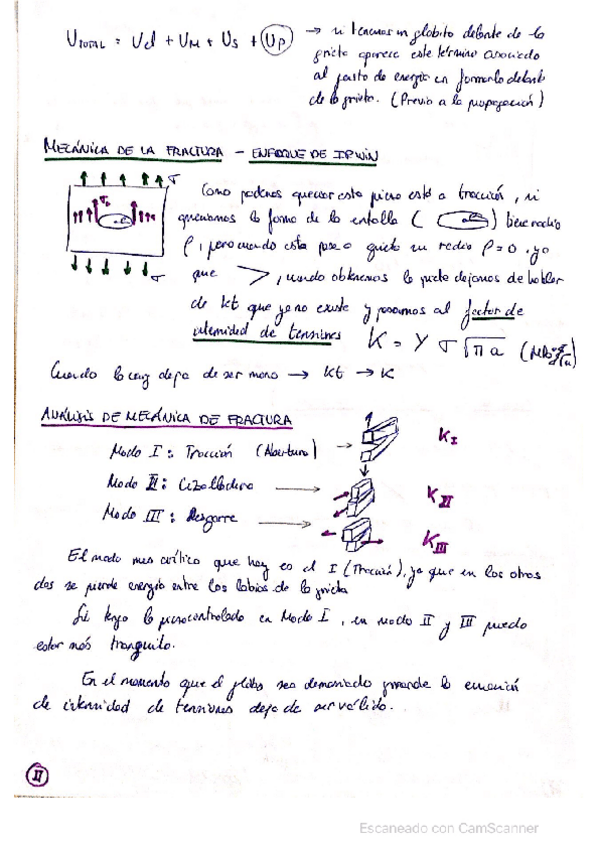 U_TOTAL = Ucl + U_M + U_S + U_P → si tenemos un globito delante de la
grieta aparece este término asociado
al gasto de energía en formarlo delante
de la grieta. (Previo a la propagación)
MECÁNICA DE LA FRACTURA - ENFOQUE DE IRWIN
σ
Como podemos que esta pieza está a tracción, si
la forma de la entalla ( ) tiene radio
ρ, pero cuando esta pasa a grieta su radio ρ=0, ya
que >, cuando obtenemos la grieta dejamos de hablar
σ
de kt que ya no existe y pasamos al factor de
intensidad de tensiones K = Y σ √πa
Cuando la deja de ser → kt → K
ANÁLISIS DE MECÁNICA DE FRACTURA
Modo I: Tracción (Abertura) → K_I
Modo II: Cizalladura → K_II
Modo III: Desgarre → K_III
El modo mas crítico que hay es el I (Tracción), ya que en los otros
dos se pierde energía entre los labios de la grieta
Si tengo la pieza controlado en Modo I, en modo II y III puedo
estar más tranquilo.
En el momento que el globo sea demasiado grande la ecuación
de intensidad de tensiones deja de ser válido.
II
Escaneado con CamScanner